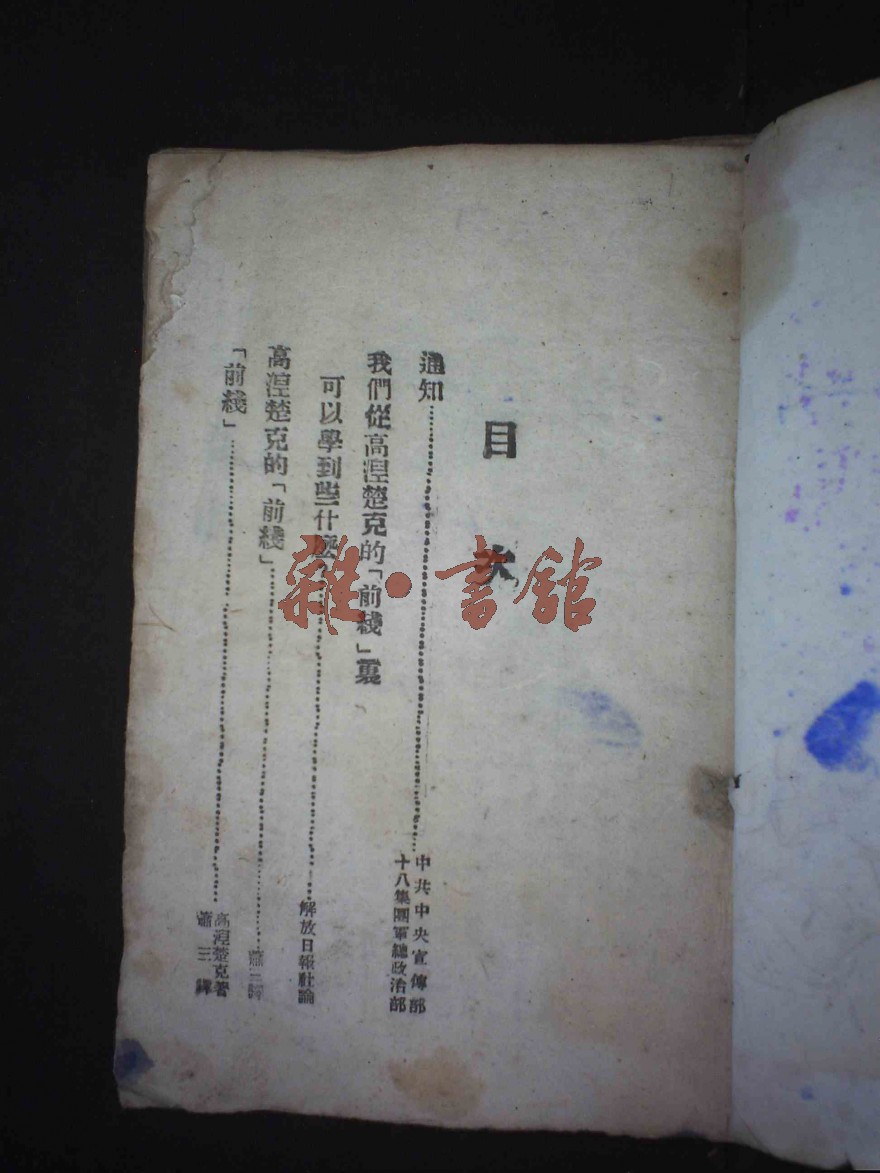 目次
通知……中共中央宣傳部
十八集團軍總政治部
我們從高涅楚克的「前綫」裏
可以學到些什麼……解放日報社論
高涅楚克的「前綫」……蕭三
「前綫」……高涅楚克著
蕭三譯
雜·書館